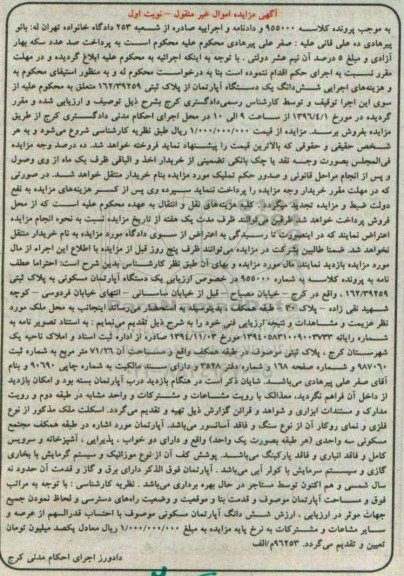 آگهی مزایده اموال غیر منقول - نوبت اول
به موجب پرونده کلاسه ۹۵۵۰۰۰ و دادنامه و اجراییه صادره از شعبه ۲۵۳ دادگاه خانواده تهران له: بانو
پیرهادی ده علی فانی علیه : صفر علی پیرهادی محکوم علیه محکوم است به پرداخت صد عدد سکه بهار
آزادی و مبلغ ۵ درصد آن نیم عشر دولتی . با توجه به اینکه اجرائیه به محکوم علیه ابلاغ گردیده و در مهلت
مقرر نسبت به اجرای حکم اقدام ننموده است بنا به درخواست محکوم له و به منظور استیفای محکوم به
و هزینه‌های اجرایی شش‌دانگ یک دستگاه آپارتمان از پلاک ثبتی ۱۶۲/۳۹۲۵۹ متعلق به محکوم علیه از
سوی این اجرا توقیف و توسط کارشناس رسمی‌دادگستری کرج بشرح ذیل توصیف و ارزیابی شده و مقرر
گردیده در مورخ ۱۳۹۶/۴/۱ از ساعت ۹ الی ۱۰ در محل اجرای احکام مدنی دادگستری کرج از طریق
مزایده بفروش برسد. مزایده از قیمت ۱/۰۰۰/۰۰۰/۰۰۰ ریال طبق نظریه کارشناسی شروع می‌شود و به هر
شخص حقیقی و حقوقی که بالاترین قیمت را پیشنهاد نماید فروخته خواهد شد. ده درصد وجه مزایده
فی‌المجلس بصورت وجه نقد یا چک بانکی تضمینی از خریدار اخذ و الباقی ظرف یک ماه از وی وصول
و پس از انجام مراحل قانونی و صدور حکم تملیک مورد مزایده بنام خریدار منتقل خواهد شد. در صورتی
که در مهلت مقرر خریدار وجه مزایده را پرداخت ننماید سپرده وی پس از کسر هزینه‌های مزایده به نفع
دولت ضبط و مزایده تجدید میگردد. کلیه هزینه‌های نقل و انتقال به عهده محکوم علیه است که از محل
فروش پرداخت خواهد شد طرفین می‌توانند ظرف مدت یک هفته از تاریخ مزایده نسبت به نحوه انجام مزایده
اعتراض نمایند که در اینصورت تا رسیدگی به اعتراض از سوی دادگاه مورد مزایده به نام خریدار منتقل
نخواهد شد. ضمنا طالبین شرکت در مزایده می‌توانند ظرف پنج روز قبل از مزایده با اطلاع این اجراء از مال
مورد مزایده بازدید نمایند. مال مورد مزایده و بهای آن طبق نظر کارشناسی بدین شرح است: احتراما عطف
نامه به پرونده کلاسه به شماره ۹۵۵۰۰۰ در خصوص ارزیابی یک دستگاه آپارتمان مسکونی به پلاک ثبتی
۱۶۲/۳۹۲۵۹ ، واقع در کرج – خیابان مصباح – قبل از خیابان ساسانی – انتهای خیابان فردوسی – کوچه
شهید نقی زاده – پلاک ۲۰ طبقه همکف ، بدینوسیله به استحضار می‌رساند اینجانب به محل ملک مورد
نظر عزیمت و مشاهدات و نتیجه ارزیابی فنی خود را به شرح ذیل تقدیم می‌نمایم : به استناد تصویر نامه به
شماره رایانه ۱۳۹۴۰۵۸۳۱۰۰۹۰۰۳۷۳۳ مورخ ۱۳۹۴/۱۱/۰۳ صادره از اداره ثبت اسناد و املاک ناحیه یک
شهرستان کرج ، پلاک ثبتی موصوف در طبقه همکف واقع و مساحت آن ۷۱/۲۶ متر مربع به شماره ثبت
۹۸۷۰۶۰ و شماره صفحه ۱۶۸ و شماره دفتر ۳۵۷۸ و دارای سند مالکیت به شماره چاپی ۹۰۶۹۰ و بنام
آقای صفر علی پیرهادی می‌باشد. شایان ذکر است در هنگام بازدید درب آپارتمان بسته بود و امکان بازدید
از داخل آن فراهم نگردید، معذالک با رویت مشاعات و مشترکات و واحد مشابه در طبقه دوم و رویت
مدارک و مستندات ابرازی و شواهد و قرائن گزارش ذیل تهیه و تقدیم می‌گردد. اسکلت ملک مذکور از نوع
فلزی و نمای روکار آن از نوع سنگ و فاقد آسانسور می‌باشد. آپارتمان مورد اشاره در طبقه همکف مجتمع
مسکونی سه واحدی (هر طبقه بصورت یک واحد) واقع و دارای دو خواب ، پذیرایی ، آشپزخانه و سرویس
کامل و فاقد انباری و فاقد پارکینگ می‌باشد. پوشش کف آن از نوع موزائیک و سیستم گرمایش با بخاری
گازی و سیستم سرمایش با کولر آبی می‌باشد . آپارتمان فوق الذکر دارای برق و گاز و قدمت آن حدود نه
سال شمسی و هم اکنون توسط ستاجر در حال بهره برداری می‌باشد. نظریه کارشناسی : با توجه به مراتب
فوق و مساحت آپارتمان موصوف و قدمت بنا و موقعیت و وضعیت راه‌های دسترسی و لحاظ نمودن جمیع
جهات موثر در ارزیابی ، ارزش شش دانگ آپارتمان مسکونی موصوف با احتساب قدرالسهم از عرصه و
سایر مشاعات و مشترکات به نرخ پایه مزایده به مبلغ ۱/۰۰۰/۰۰۰/۰۰۰ ریال معادل یکصد میلیون تومان
تعیین و تقدیم می‌گردد. ۹۶۲۵۳م/الف
دادورز اجرای احکام مدنی کرج